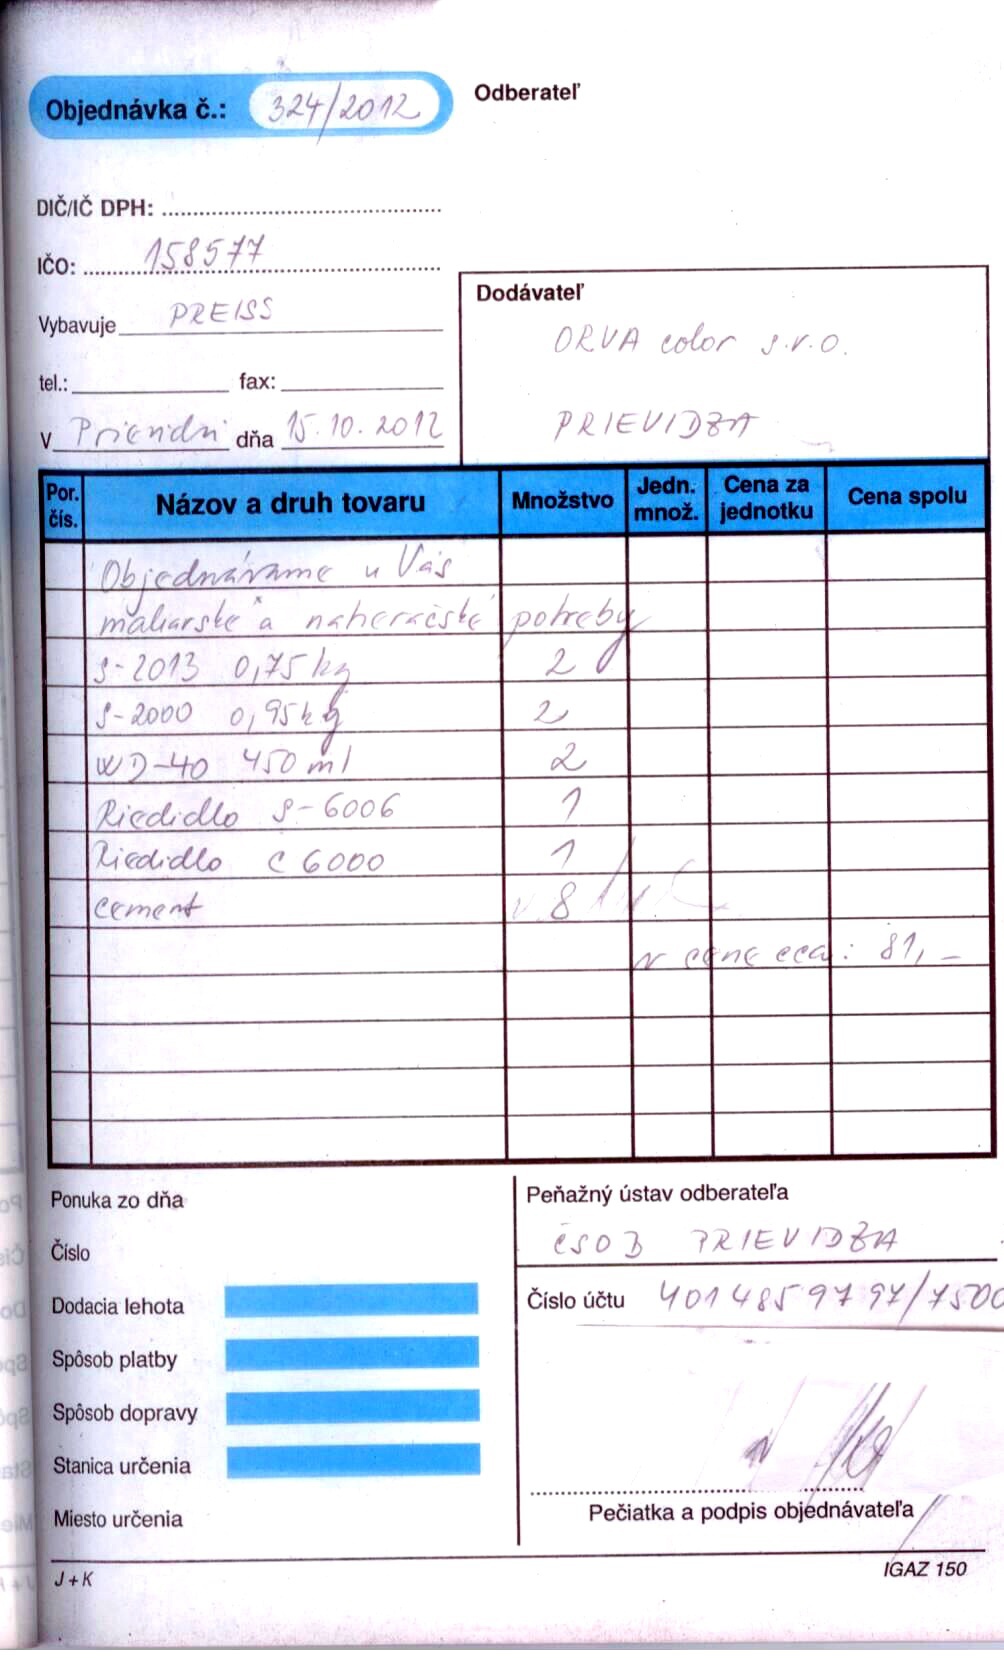 Objednávka č.: 324/2012
Odberateľ
DIČ/IČ DPH:
IČO: 158577
Vybavuje PREISS
tel.: fax:
V dňa 15.10.2012
Dodávateľ
ORVA color s.r.o.
PRIEVIDZA
Por. čís. Názov a druh tovaru Množstvo Jedn. množ. Cena za jednotku Cena spolu
Objednávame u Vás
maliarske a natieračské potreby
S-2013 0,75 kg 2
S-2000 0,95 kg 2
WD-40 450 ml 2
Riedidlo S-6006 1
Riedidlo C 6000 1
cement 8
v cene cca: 81,-
Ponuka zo dňa
Číslo
Dodacia lehota
Spôsob platby
Spôsob dopravy
Stanica určenia
Miesto určenia
Peňažný ústav odberateľa
ČSOB PRIEVIDZA
Číslo účtu 4014859797/7500
Pečiatka a podpis objednávateľa
J + K
IGAZ 150